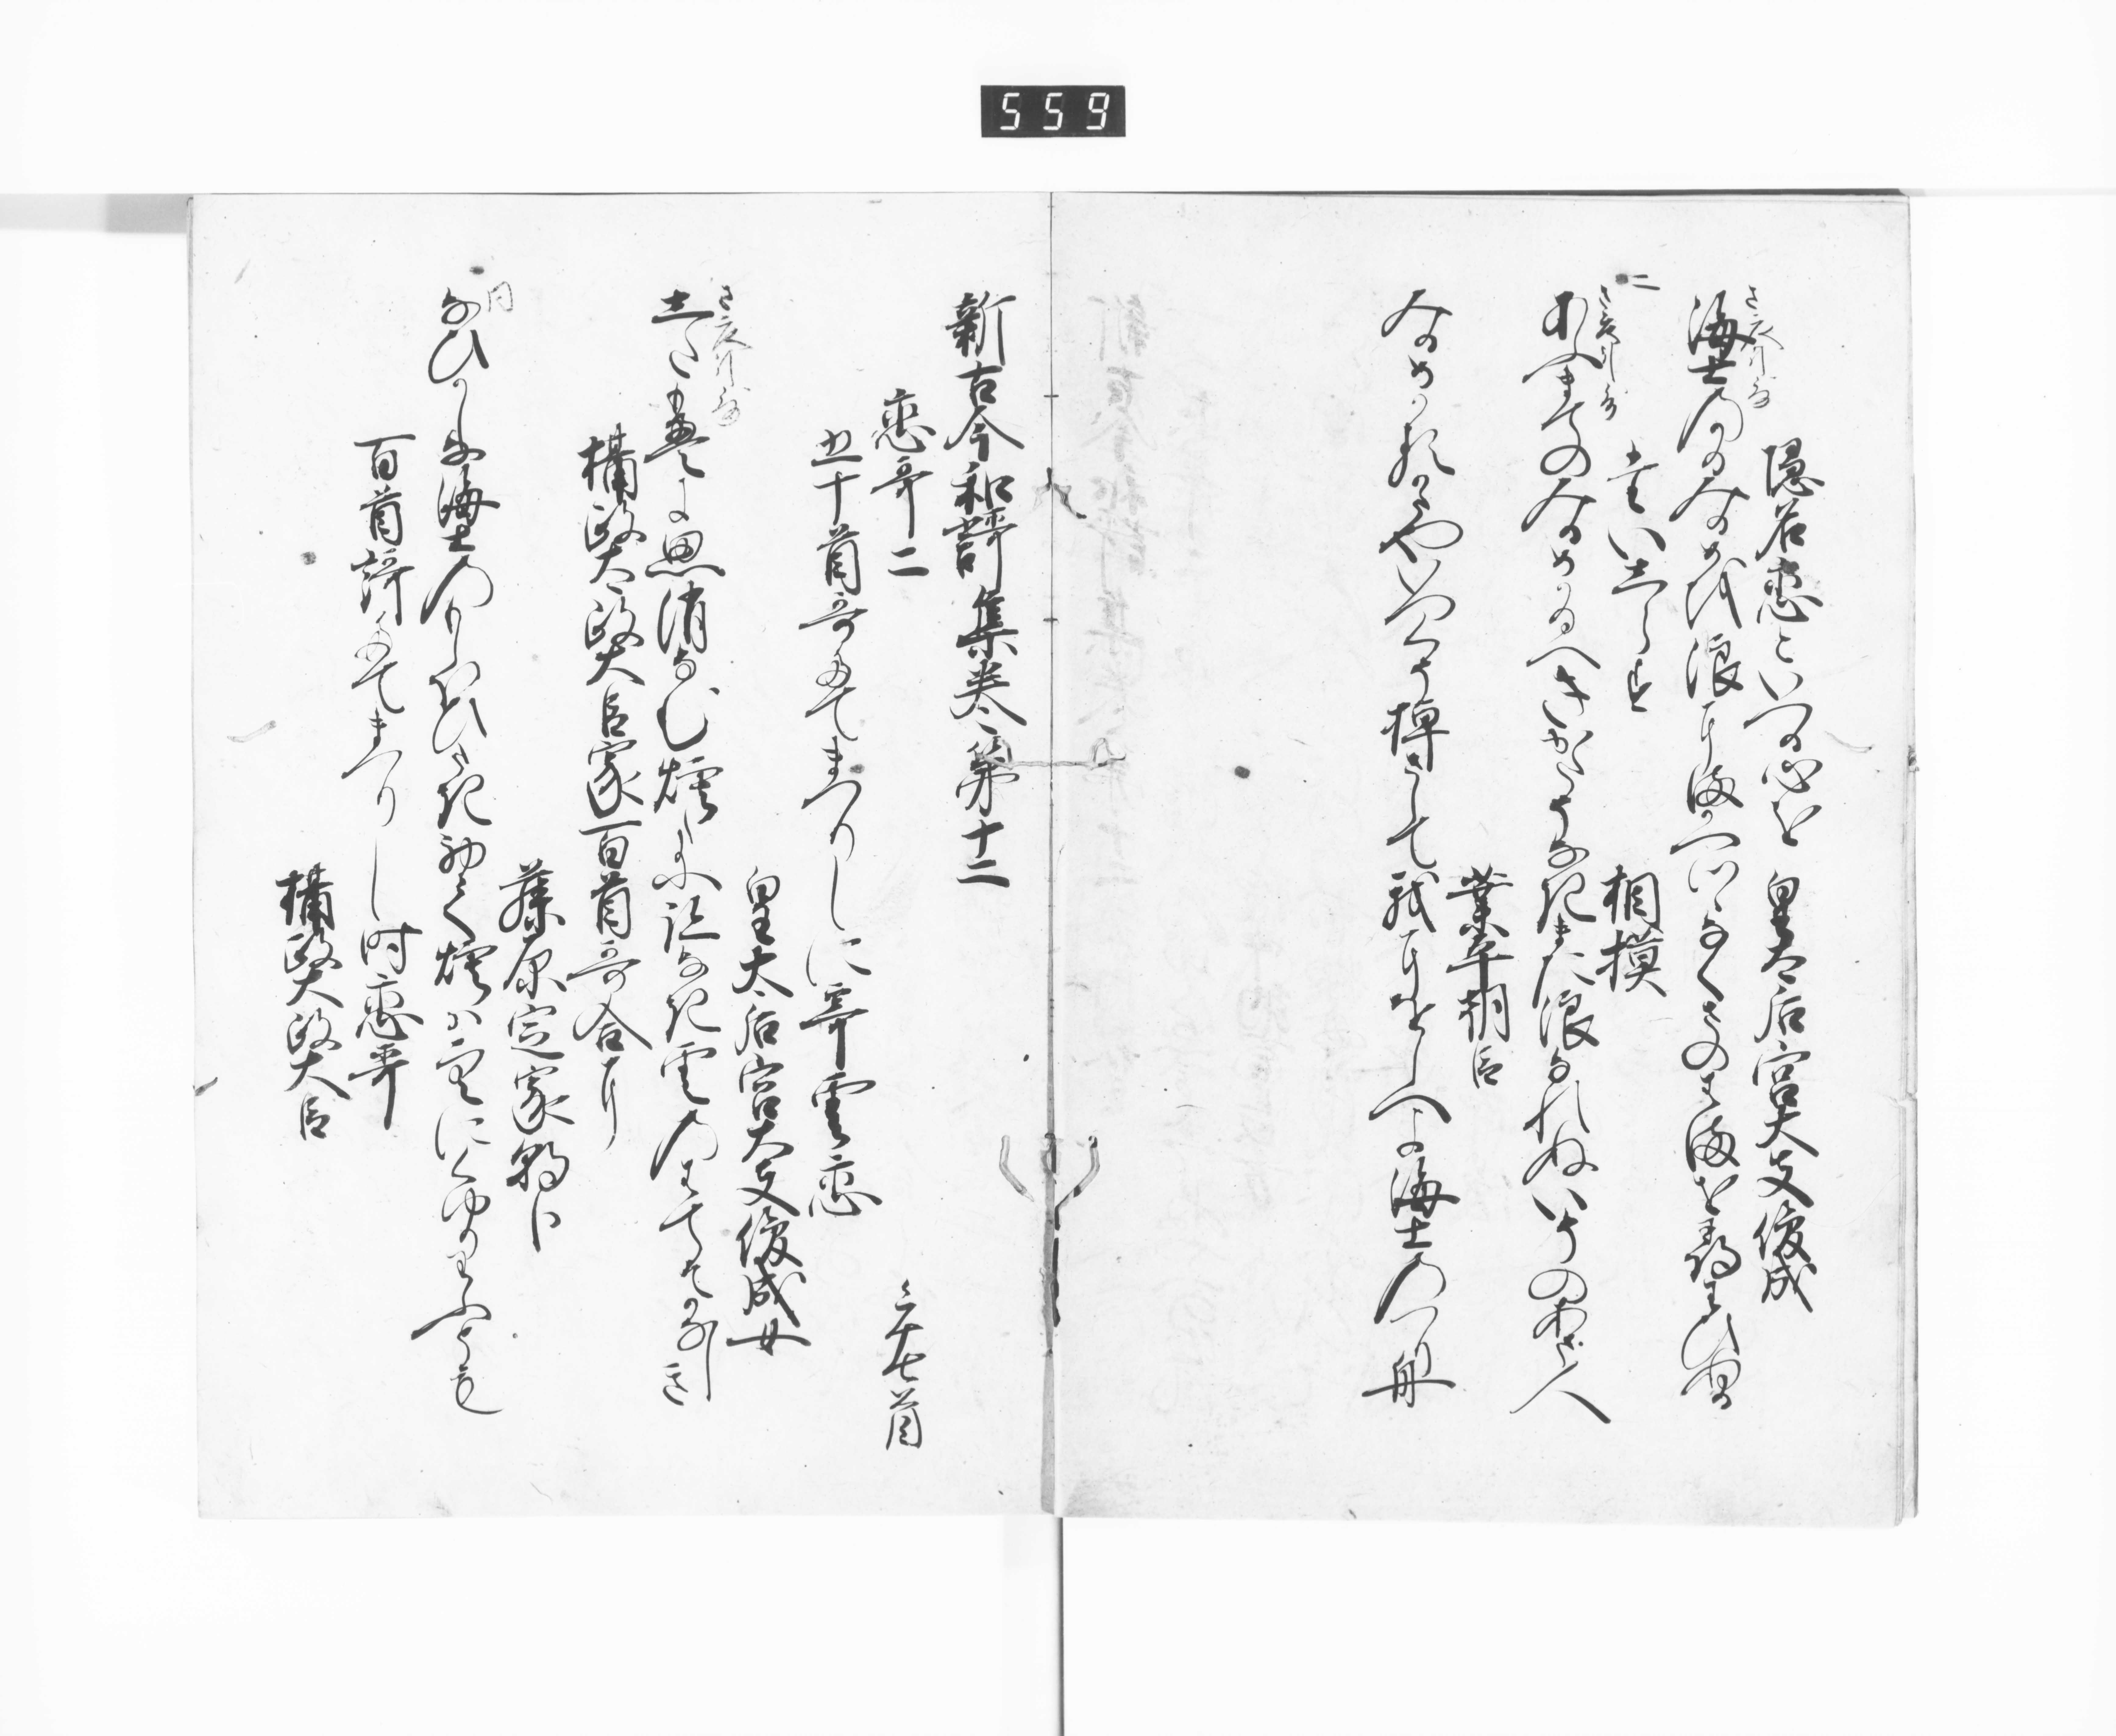 559
隠名恋といへる心を　皇太后宮大夫俊成
海士のかるみるめを浪にまかへつゝなくさのはまを尋わひぬる
たいしらす　相摸
あふまてのみるめかるへきかたそなきまた浪なれぬいそのあま人
業平朝臣
みるめかるかたやいつくそ棹さして我にをしへよ海士のつり舟
新古今和謌集巻第十二
恋哥二
三十七首
五十首哥たてまつりしに寄雲恋
皇太后宮大夫俊成女
したもえに思消なむ煙たに跡なき雲のはてそかなしき
摂政太政大臣家百首哥合に
藤原定家朝臣
なひかしな海士のもしほひたき初て煙は空にくゆりわふとも
百首謌たてまつりし時恋哥
摂政太政大臣